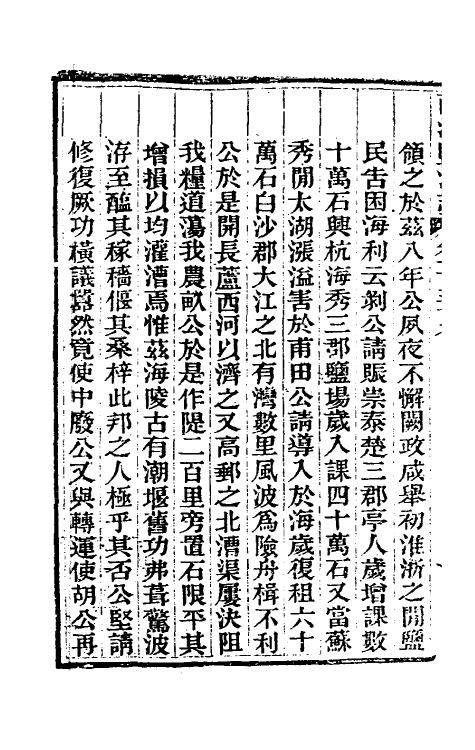 領之於茲八年公夙夜不懈闕政咸舉初淮浙之閒鹽
民告困海利云剝公請賑崇泰楚三郡亭人歲增課數
十萬石興杭海秀三郡鹽場歲入課四十萬石又當蘇
秀閒太湖漲溢害於甫田公請導入於海歲復租六十
萬石白沙郡大江之北有灣數里風波為險舟楫不利
公於是開長蘆西河以濟之又高郵之北漕渠屢決阻
我糧道蕩我農畝公於是作隄二百里旁置石限平其
增損以均灌漕焉惟茲海陵古有潮堰舊功弗葺驚波
洊至醢其稼穡偃其桑梓此邦之人極乎其否公堅請
修復厥功橫議囂然竟使中廢公又與轉運使胡公再